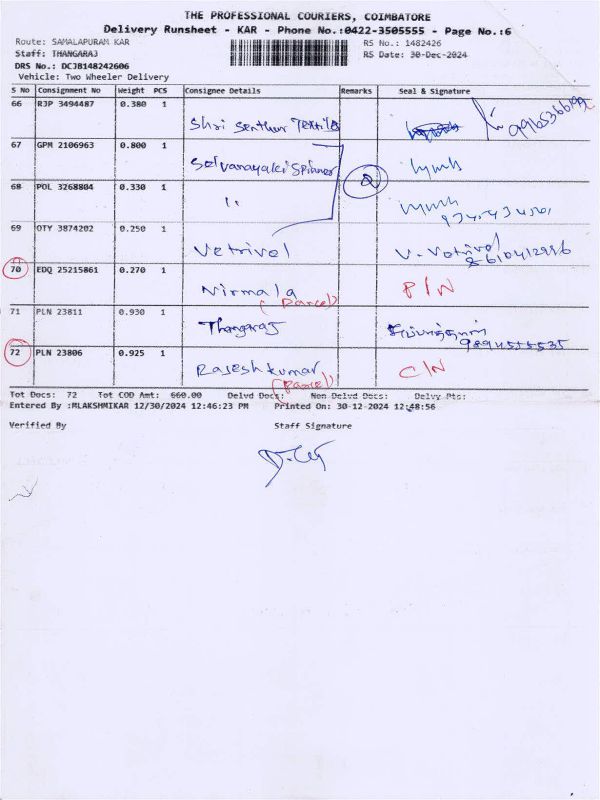 THE PROFESSIONAL COURIERS, COIMBATORE
Delivery Runsheet - KAR - Phone No.:0422-3505555 - Page No.:6
Route: SAMALAPURAM KAR
RS No.: 1482426
Staff: THANGARAJ
RS Date: 30-Dec-2024
DRS No.: DCJB148242606
Vehicle: Two Wheeler Delivery
S No Consignment No Weight PCS Consignee Details Remarks Seal & Signature
66 RJP 3494487 0.380 1 Shri Senthur Textile
67 GPM 2106963 0.800 1 Selvanayaki Spinner
68 POL 3268804 0.330 1 "
2
69 OTY 3874202 0.250 1 Vetrivel V. Vetrivel
70 EDQ 25215861 0.270 1 Nirmala P/N
(Parcel)
71 PLN 23811 0.930 1 Thangaraj
72 PLN 23806 0.925 1 Rajesh kumar C/N
(Parcel)
Tot Docs: 72 Tot COD Amt: 660.00 Delvd Docs: Non Delvd Docs: Delvy Pts:
Entered By :MLAKSHMIKAR 12/30/2024 12:46:23 PM Printed On: 30-12-2024 12:48:56
Verified By Staff Signature